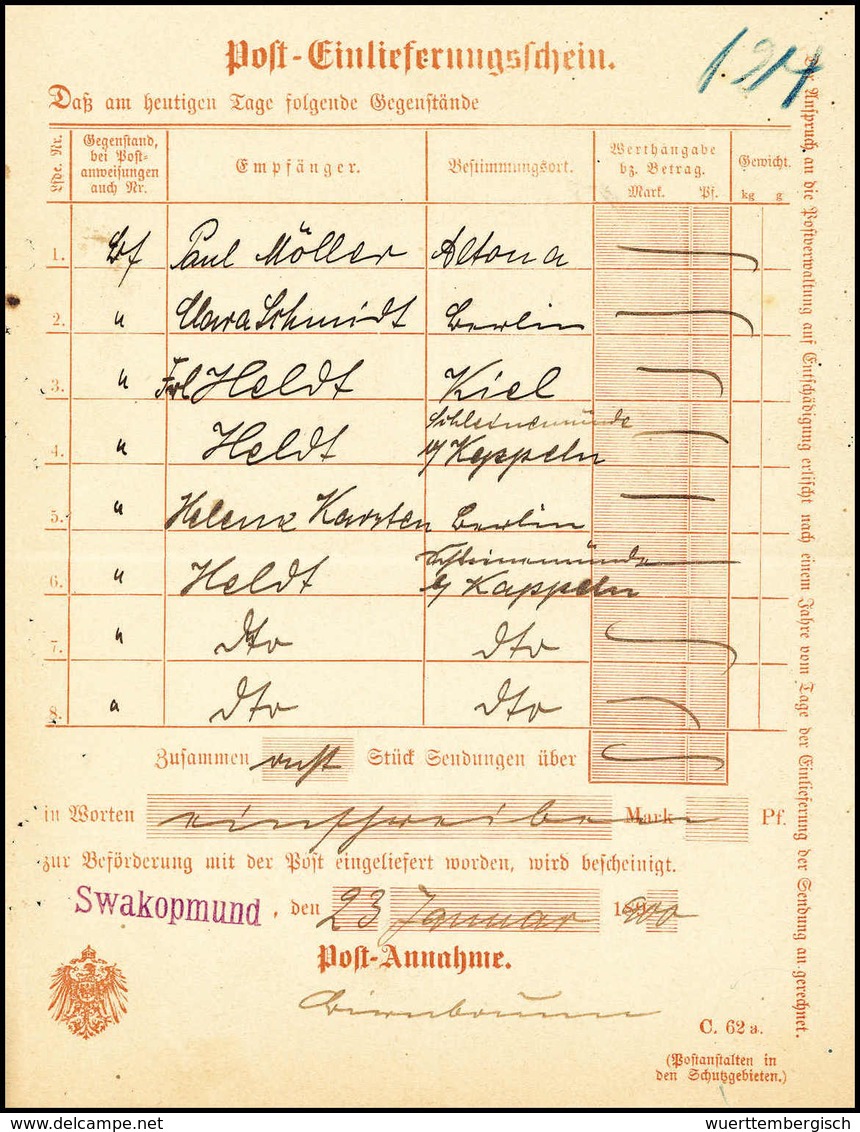 Post-Einlieferungsschein.
194
Daß am heutigen Tage folgende Gegenstände
Lfde. Nr. Gegenstand, bei Post-anweisungen auch Nr. Empfänger. Bestimmungsort. Werthangabe bz. Betrag. Mark. Pf. Gewicht. kg g
1. Bf Paul Möller Altona
2. " Clara Schmidt Berlin
3. " Frl Heldt Kiel
Schleinemünde
4. " Heldt b/ Keppeln
5. " Helene Karsten Berlin
Schleinemünde
6. " Heldt b/ Kappeln
7. " dto dto
8. " dto dto
Zusammen Stück Sendungen über
in Worten einschreiben Mark Pf.
zur Beförderung mit der Post eingeliefert worden, wird bescheinigt.
Swakopmund, den 23 Januar
Post-Annahme.
Birnbaum
C. 62 a.
(Postanstalten in
den Schutzgebieten.)
Der Anspruch an die Postverwaltung auf Entschädigung erlischt nach einem Jahre vom Tage der Einlieferung der Sendung an gerechnet.
www.delcampe.net wuerttembergisch